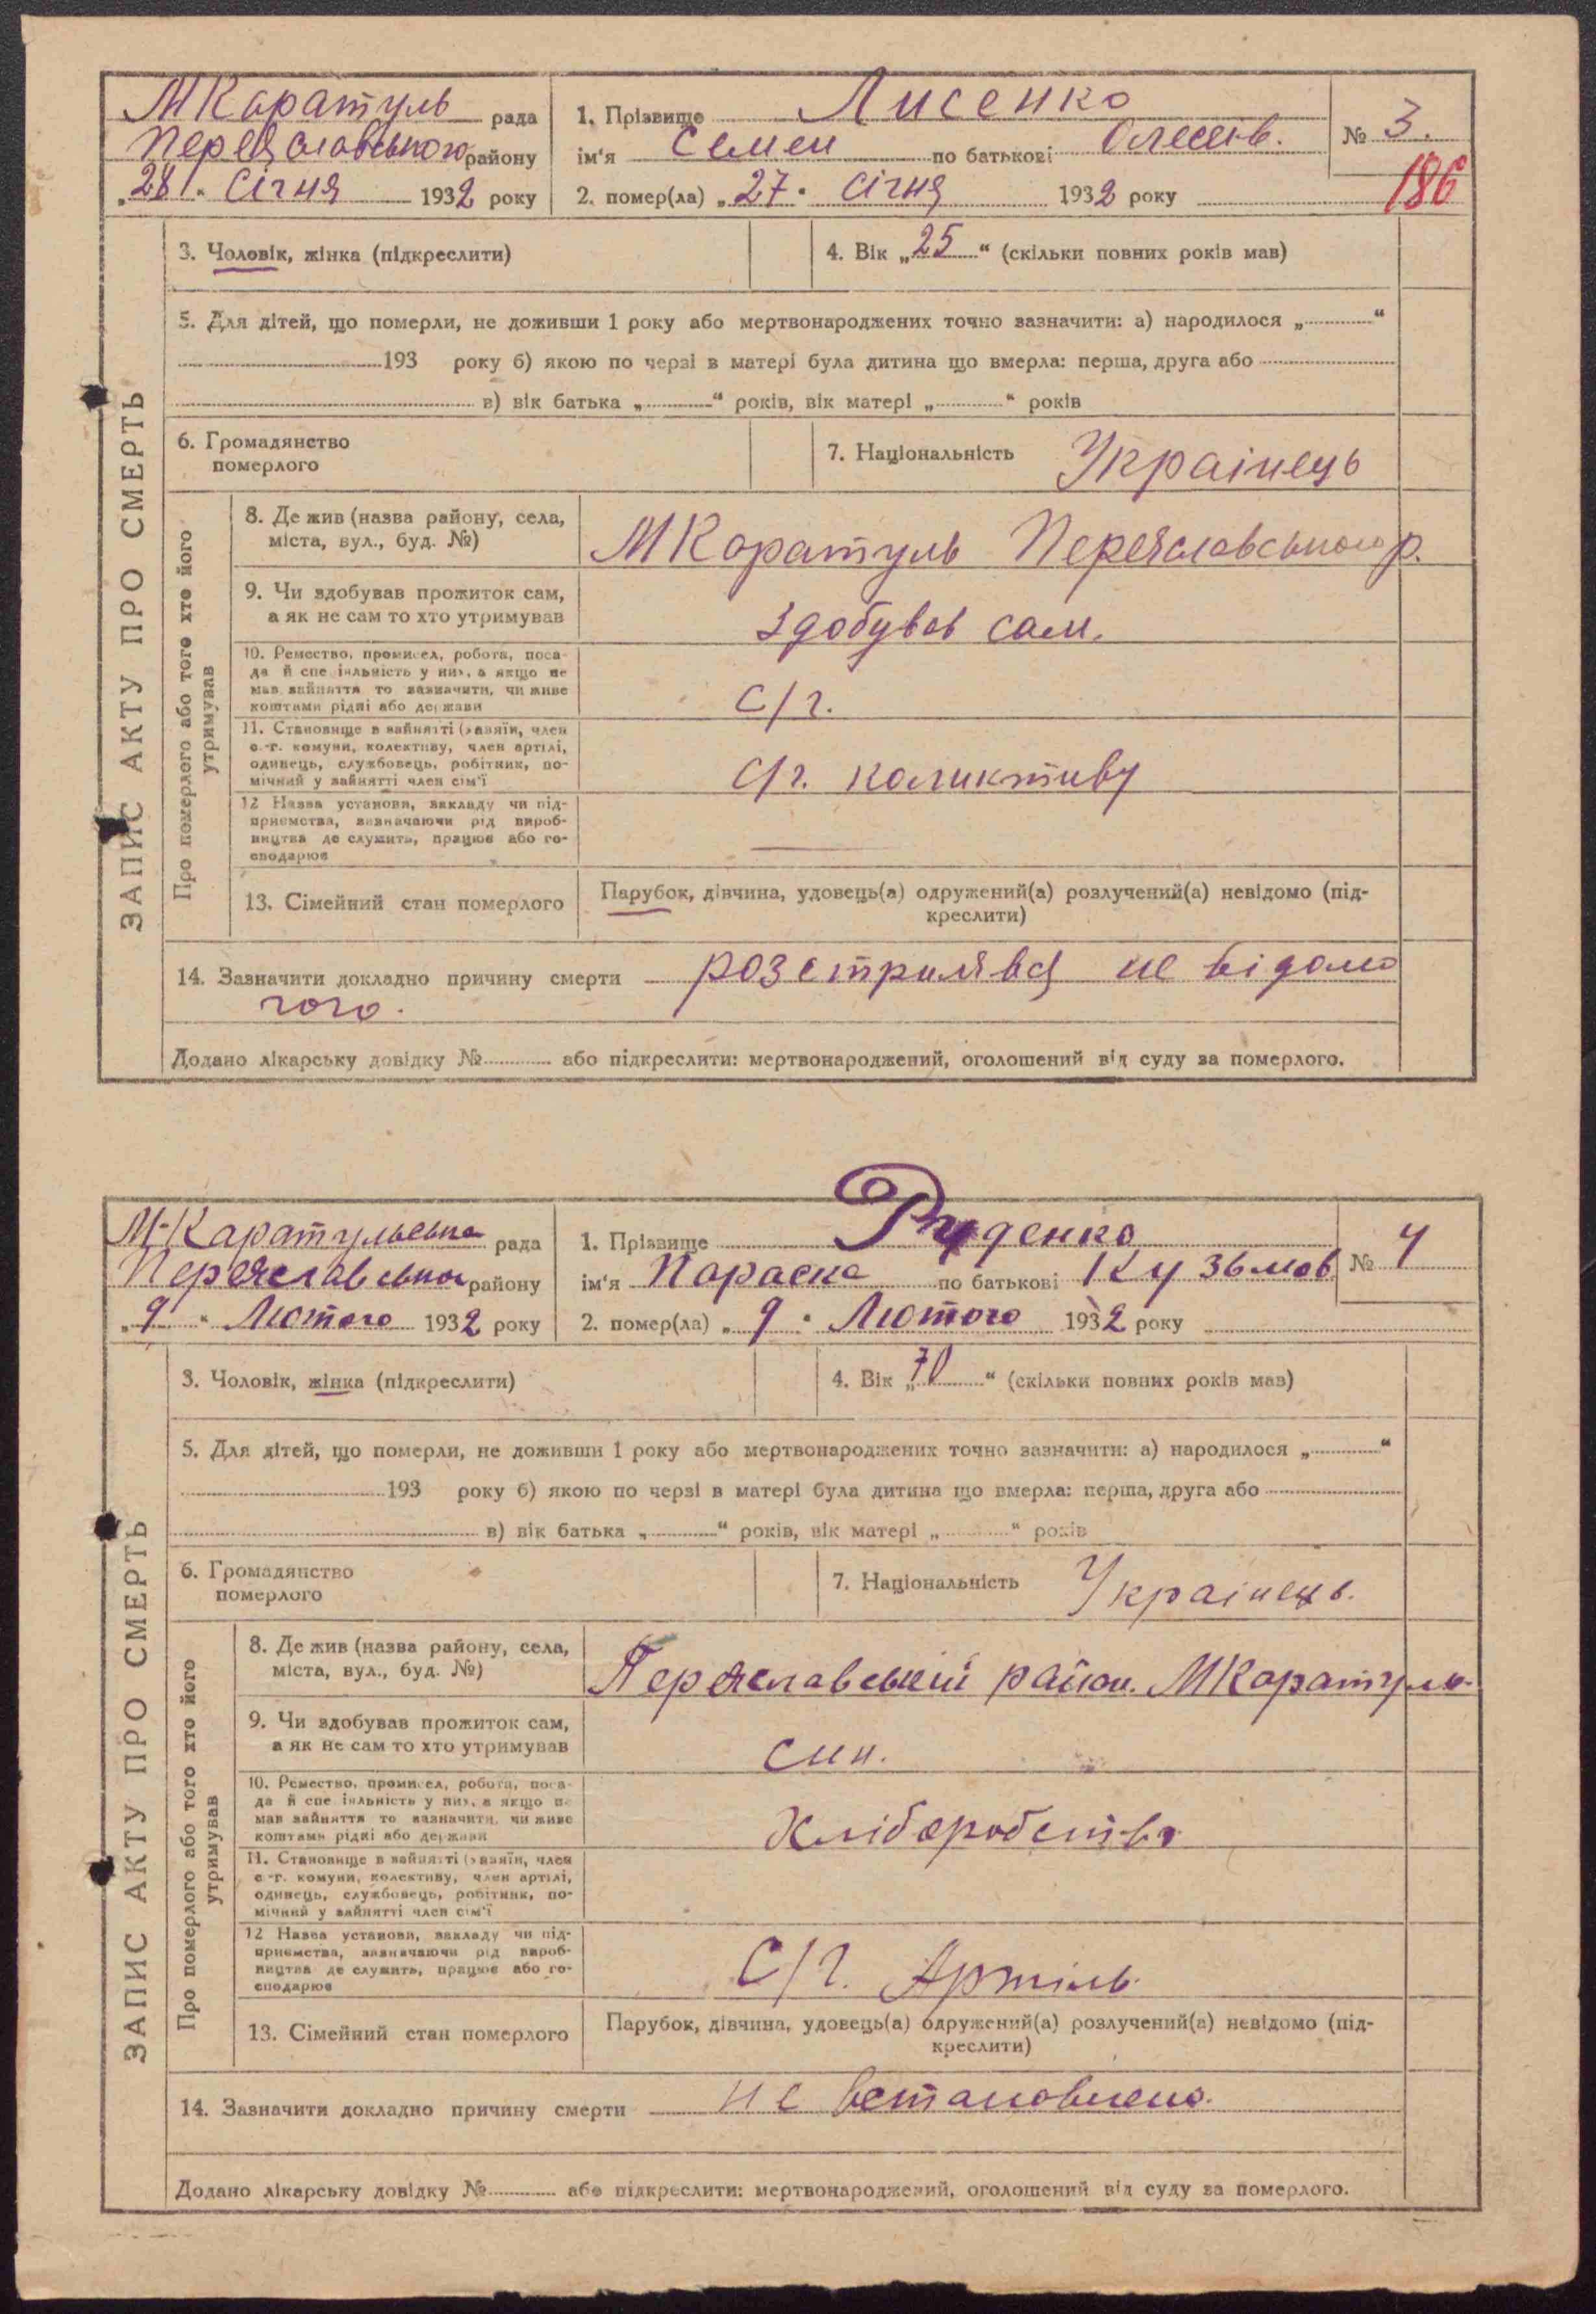 МКаратуль рада
Переяславського району
„28“ Січня 1932 року
1. Прізвище Лисенко
ім'я Семен по батькові Олесів.
2. помер(ла) „27“ Січня 1932 року
№ 3.
186
3. Чоловік, жінка (підкреслити)
4. Вік „25“ (скільки повних років мав)
5. Для дітей, що померли, не доживши 1 року або мертвонароджених точно зазначити: а) народилося „ “
193 року б) якою по черзі в матері була дитина що вмерла: перша, друга або
в) вік батька „ “ років, вік матері „ “ років
6. Громадянство
померлого
7. Національність Украінець
ЗАПИС АКТУ ПРО СМЕРТЬ
Про померлого або того хто його
утримував
8. Де жив (назва району, села,
міста, вул., буд. №)
МКаратуль Переяславського р.
9. Чи здобував прожиток сам,
а як не сам то хто утримував
здобував сам.
10. Ремество, промисел, робота, поса-
да й спеціяльність у них, а якщо не
мав зайняття то зазначити, чи живе
коштами рідні або держави
С/г.
11. Становище в зайнятті (хазяїн, член
с.-г. комуни, колективу, член артілі,
одинець, службовець, робітник, по-
мічний у зайнятті член сім'ї
С/г. коликтиву
12 Назва установи, закладу чи під-
приємства, зазначаючи рід вироб-
ництва де служить, працює або го-
сподарює
13. Сімейний стан померлого
Парубок, дівчина, удовець(а) одружений(а) розлучений(а) невідомо (під-
креслити)
14. Зазначити докладно причину смерти розстрилявся не відомо
чого.
Додано лікарську довідку № або підкреслити: мертвонароджений, оголошений від суду за померлого.
М-Каратульська рада
Переяславської району
„9“ Лютого 1932 року
1. Прізвище Руденко
ім'я Параска по батькові Кузьмов
2. помер(ла) „9“ Лютого 1932 року
№ 4
3. Чоловік, жінка (підкреслити)
4. Вік „70“ (скільки повних років мав)
5. Для дітей, що померли, не доживши 1 року або мертвонароджених точно зазначити: а) народилося „ “
193 року б) якою по черзі в матері була дитина що вмерла: перша, друга або
в) вік батька „ “ років, вік матері „ “ років
6. Громадянство
померлого
7. Національність Украінець.
ЗАПИС АКТУ ПРО СМЕРТЬ
Про померлого або того хто його
утримував
8. Де жив (назва району, села,
міста, вул., буд. №)
Переяславський район. МКаратуль.
9. Чи здобував прожиток сам,
а як не сам то хто утримував
син.
10. Ремество, промисел, робота, поса-
да й спеціяльність у них, а якщо не
мав зайняття то зазначити, чи живе
коштами рідні або держави
Хліборобство
11. Становище в зайнятті (хазяїн, член
с.-г. комуни, колективу, член артілі,
одинець, службовець, робітник, по-
мічний у зайнятті член сім'ї
12 Назва установи, закладу чи під-
приємства, зазначаючи рід вироб-
ництва де служить, працює або го-
сподарює
С/г. Артіль.
13. Сімейний стан померлого
Парубок, дівчина, удовець(а) одружений(а) розлучений(а) невідомо (під-
креслити)
14. Зазначити докладно причину смерти не встановлено.
Додано лікарську довідку № або підкреслити: мертвонароджений, оголошений від суду за померлого.